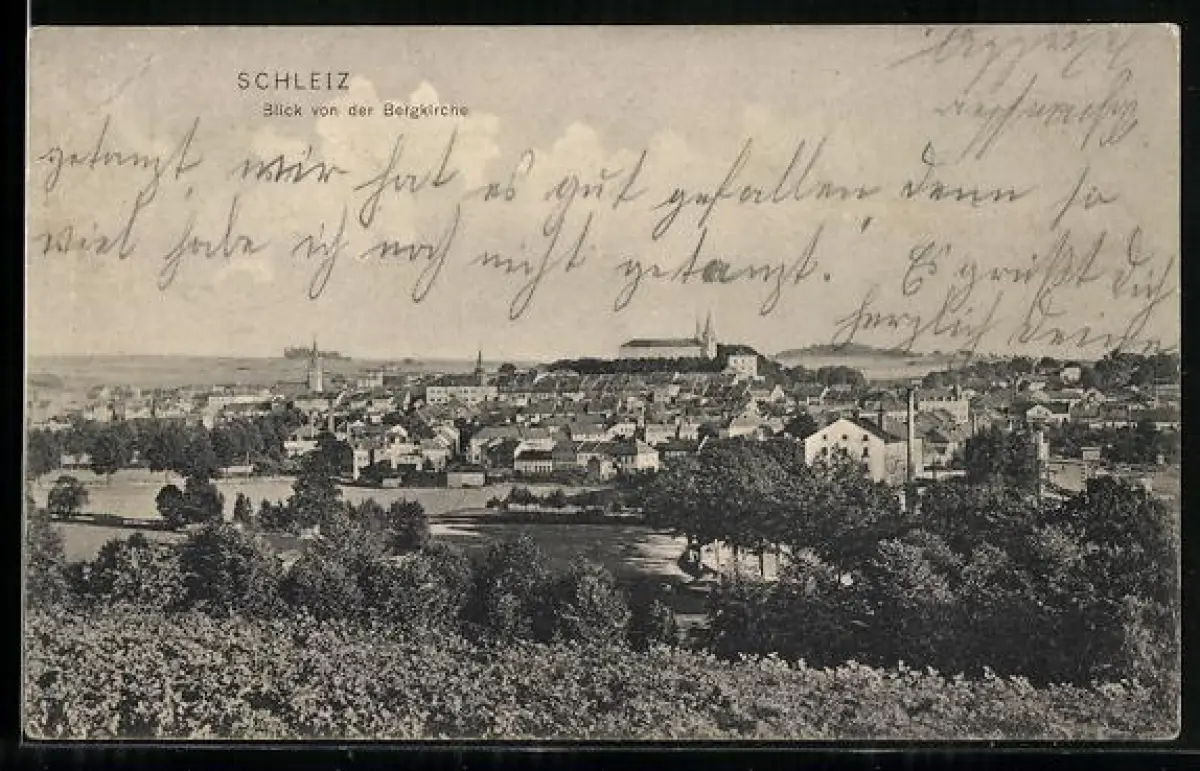 SCHLEIZ
Blick von der Bergkirche
getanzt, mir hat es gut gefallen denn so
viel habe ich noch nicht getanzt. Es grüßt Dich
herzlich Deine